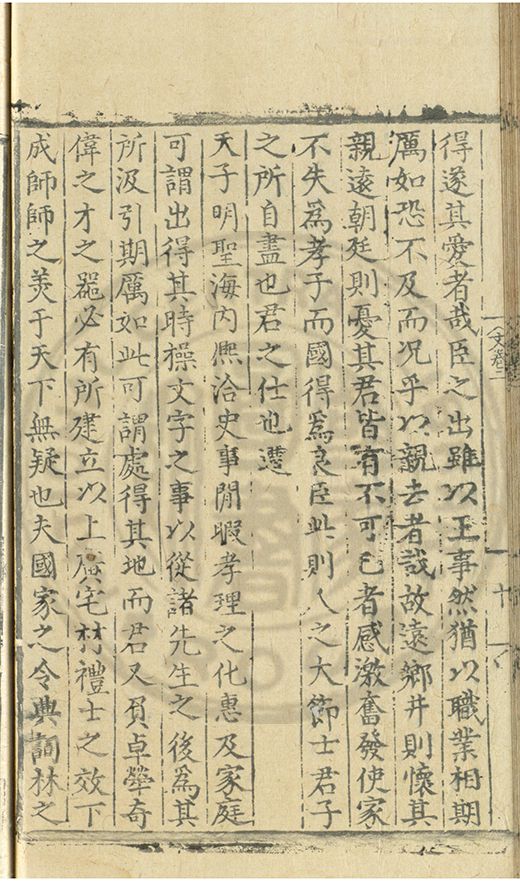 得遂其愛者哉臣之出雖以王事然猶以職業相期
厲如恐不及而况乎以親去者哉故遠鄉井則懷其
親遠朝廷則憂其君皆有不可已者感激奮發使家
不失爲孝子而國得爲良臣此則人之大節士君子
之所自盡也君之仕也遭
天子明聖海内熈洽史事閒暇孝理之化惠及家庭
可謂出得其時操文字之事以從諸先生之後爲其
所汲引期厲如此可謂處得其地而君又負卓犖奇
偉之才之器必有所建立以上廣宅材禮士之效下
成師師之羙于天下無疑也夫國家之令典詞林之
文卷二
十